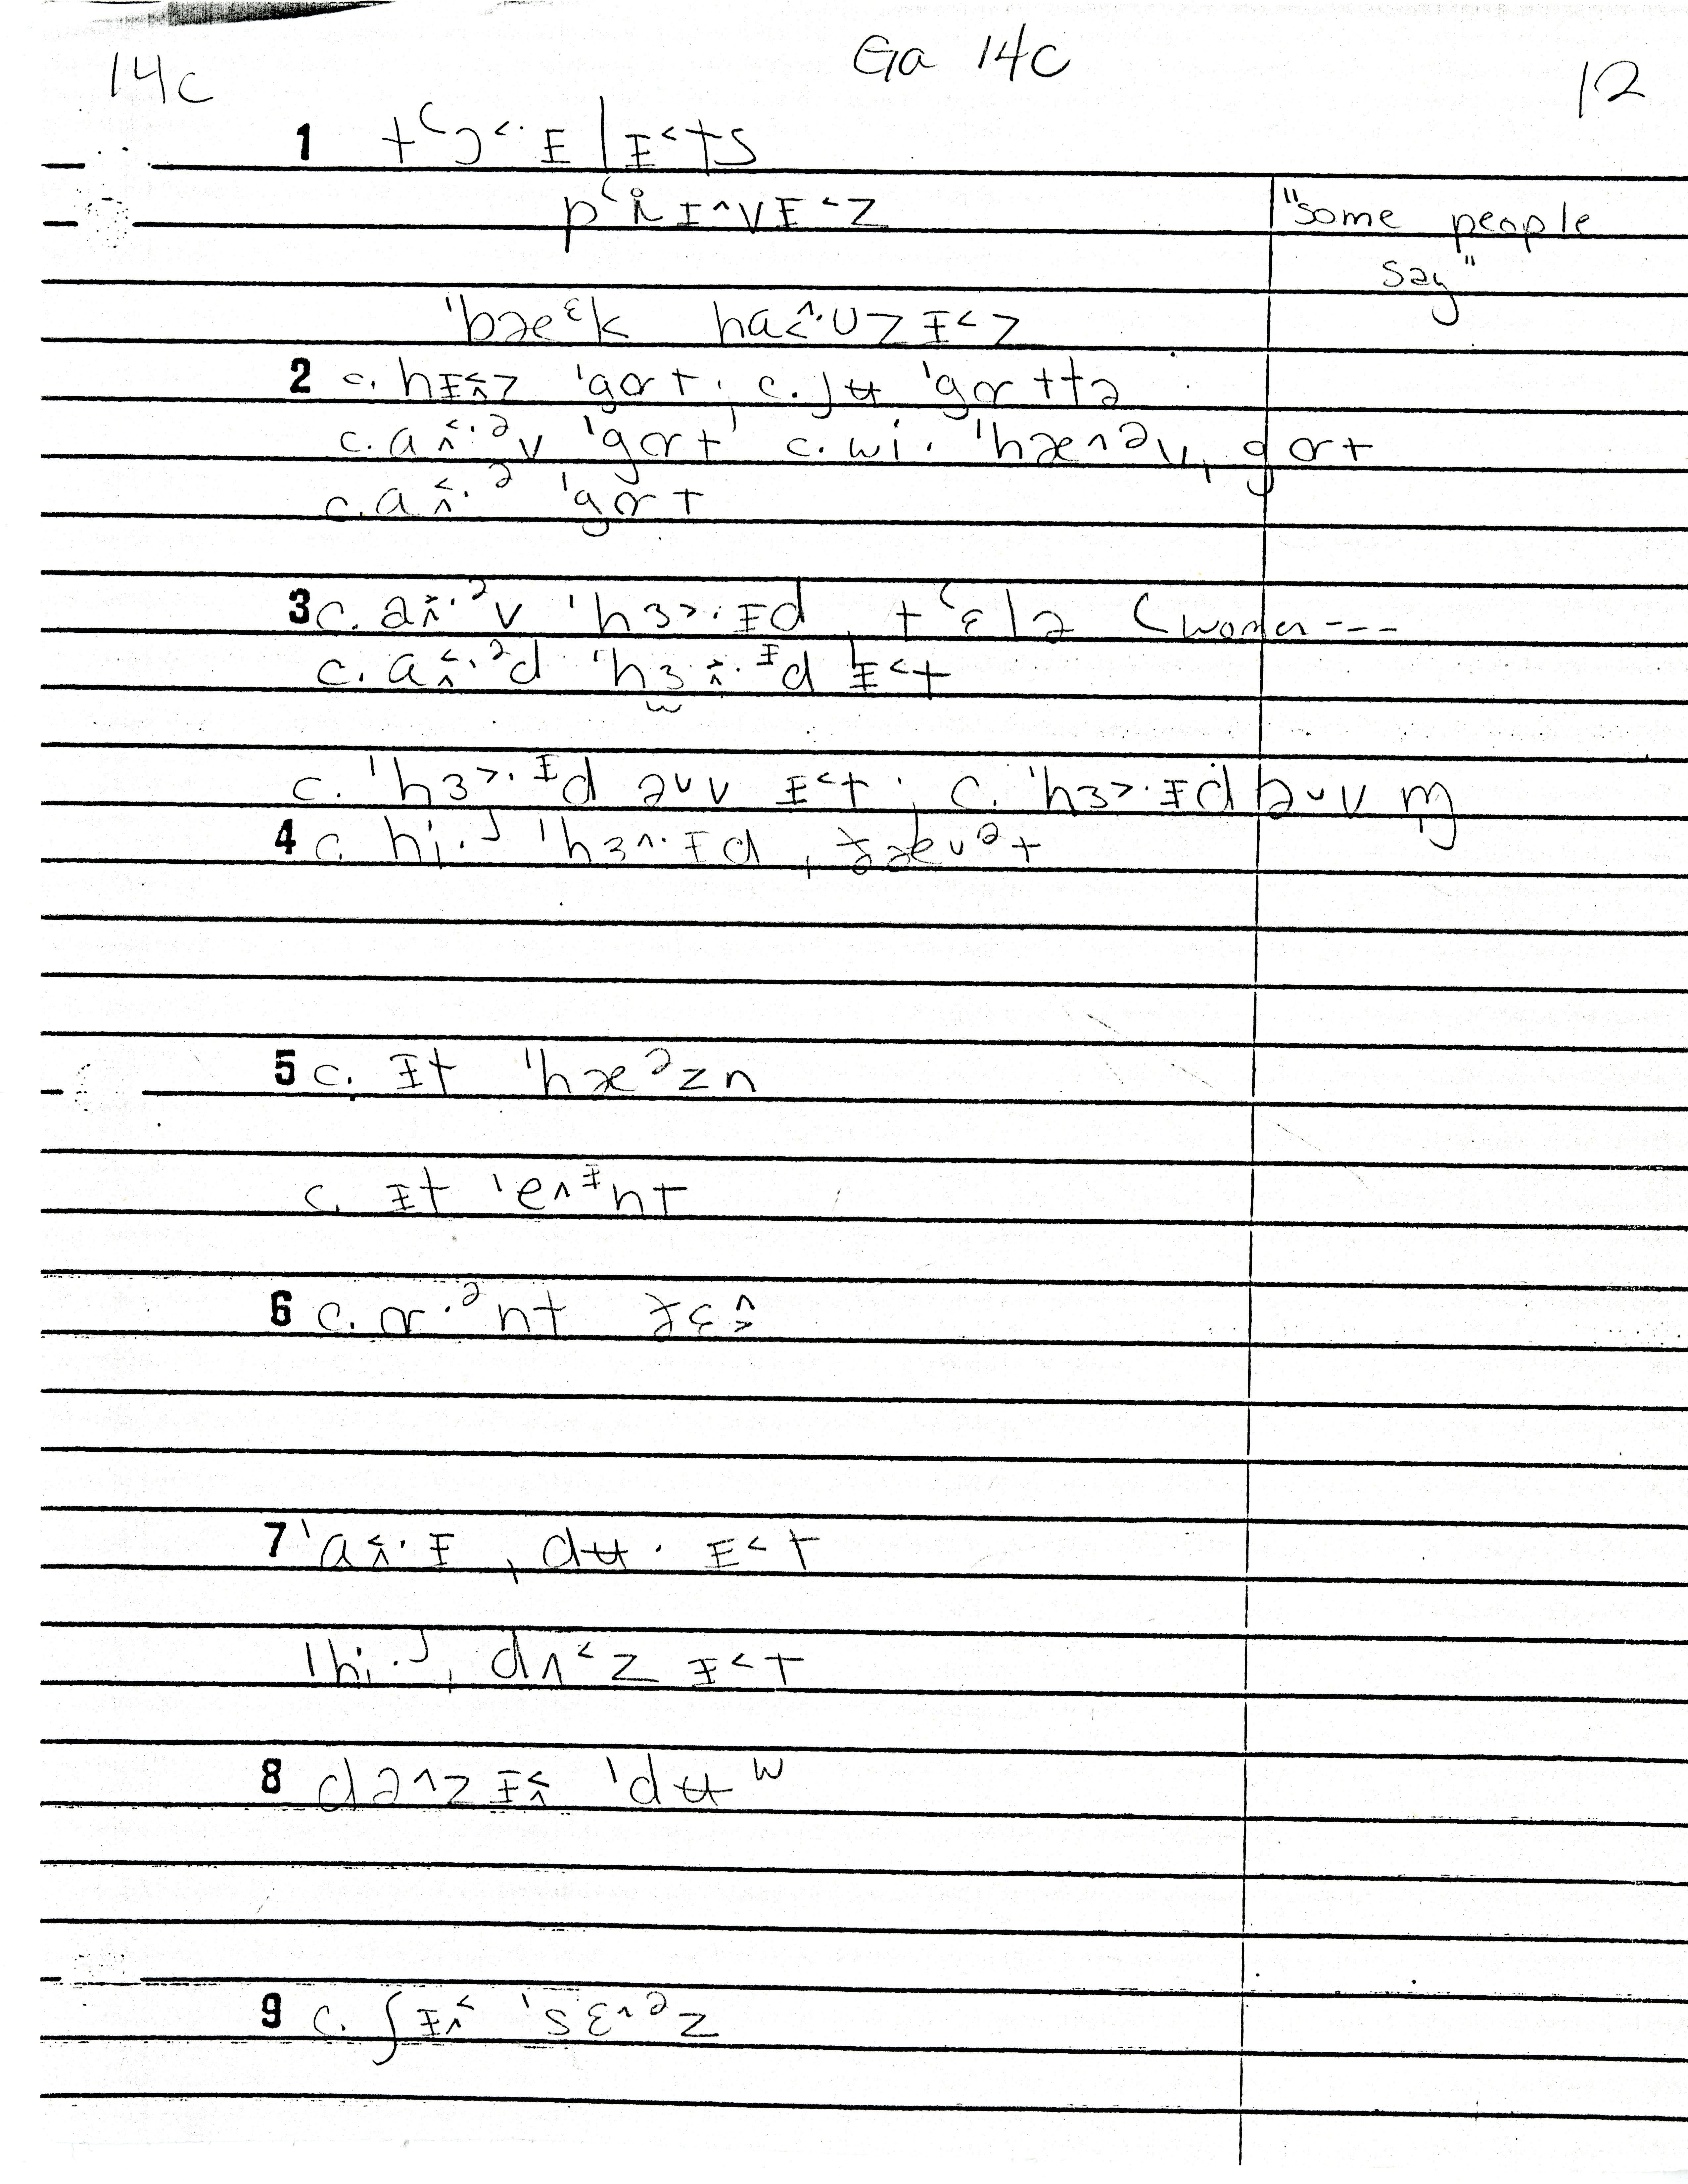 14c Ga 14c 12
1 tʻɔ˂·ɪ̵lɪ̵˂ts
pʻɹ̥ɪ̵˄vɪ̵˂z "some people
say"
ˈbæᵋk ha˂̭·ʊzɪ̵˂z
2 c. hɪ̵˂̭z ˈgɑt; c. jʉ ˈgɑttə
c. a˂̭·ᵊv ˈgɑt; c. wi· ˈhæ˄ᵊv ˌgɑt
c. a˂̭·ᵊ ˈgɑt
3 c. a˃̭·ᵊv ˈhɜ˃·ɪ̵d ˌtʻɛlə (women ---
c. a˂̭·ᵊd ˈhɜ˃̭·ᶤd ɪ̵˂t
c. ˈhɜ˃·ᶤd ə˅v ɪ̵˂t; c. ˈhɜ˃·ɪ̵d ə˅v m̩
4 c. hi·ʲ ˈhɜ˄·ɪ̵d ˌðæ˅ᵊt
5 c. ɪ̵t ˈhæᵊzn
c. ɪ̵t ˈe˄ᶤnt
6 c. ɑ·ᵊnt ðɛ˃̂
7 ˈa˂̭·ɪ̵ ˌdʉ· ɪ̵˂t
ˈhi·ʲ ˌdʌ˂z ɪ̵˂t
8 də˄z ɪ̵˂̭ ˈdʉʷ
9 c. ʃɪ̵˂̭ ˈsɛ˄ᵊz